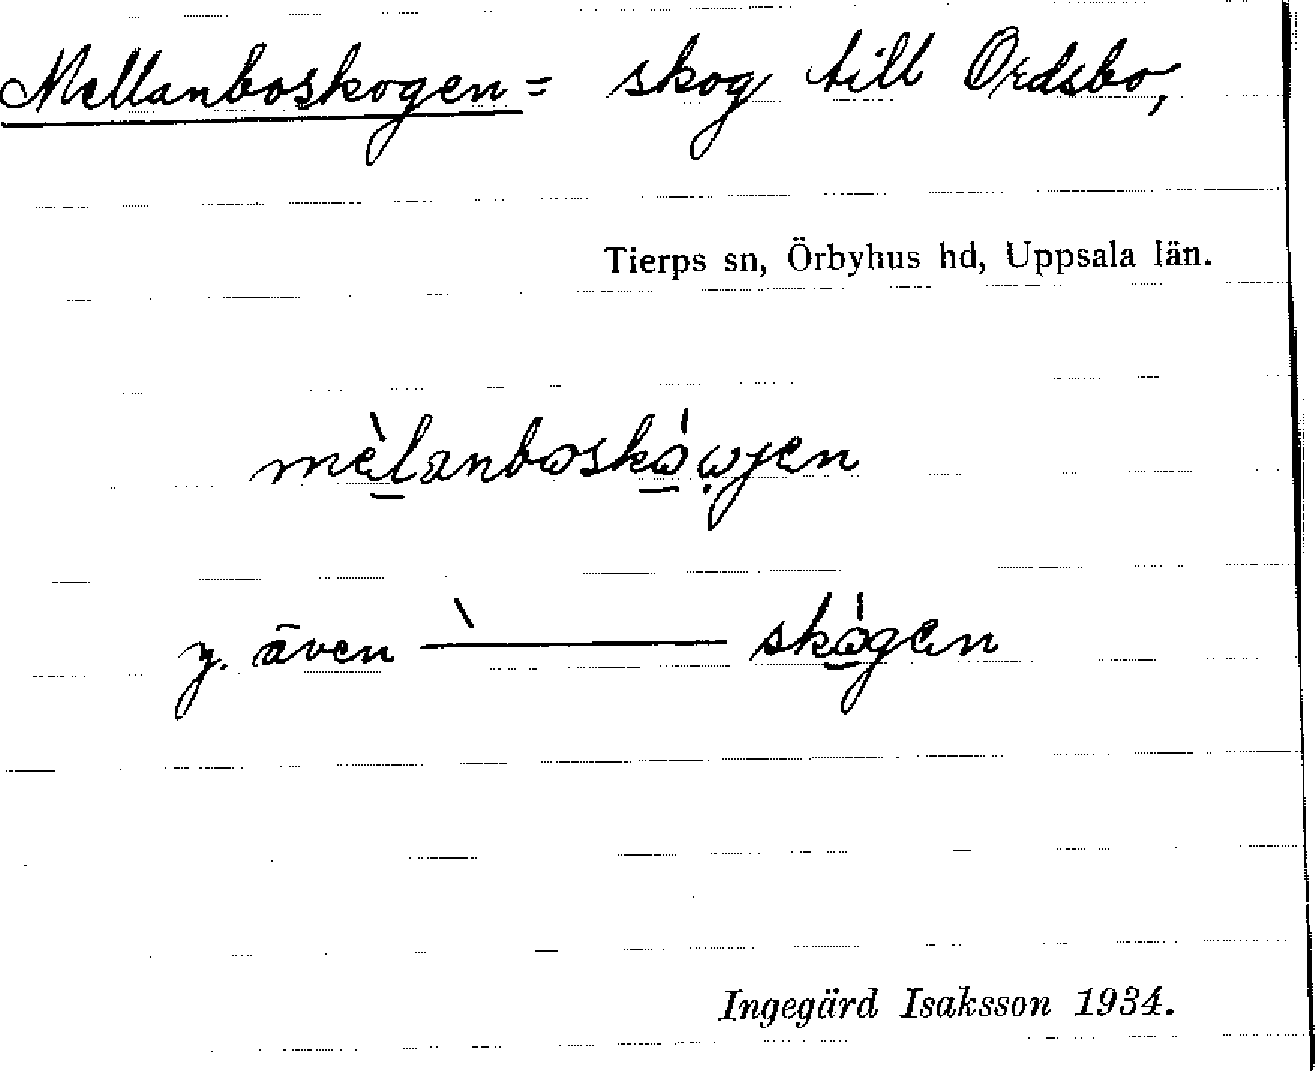 Mellanboskogen = skog till Ordsbo,
Tierps sn, Örbyhus hd, Uppsala län.
mèlanboskówjen
y. även ——— skógen
Ingegärd Isaksson 1934.